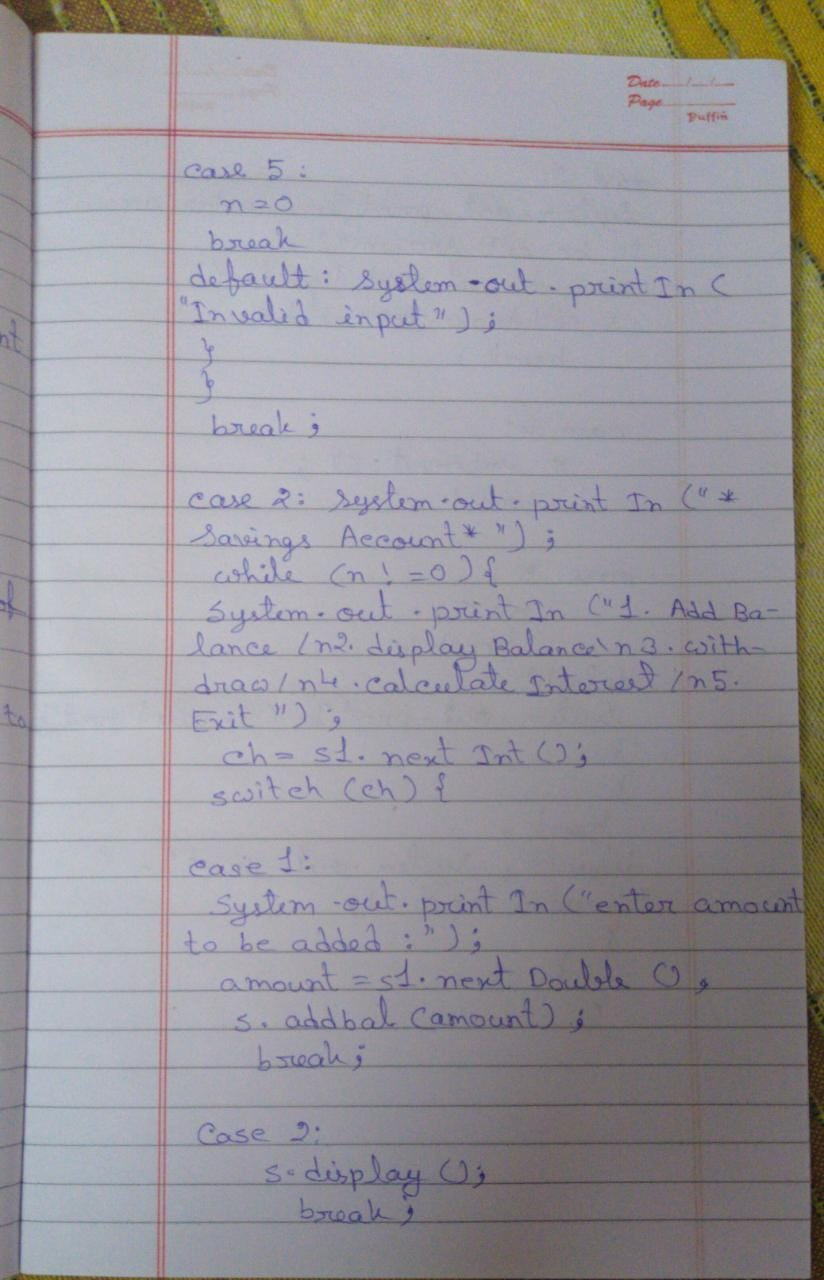 Date / /
Page
Puffin
case 5 :
n=0
break
default : system-out . print In (
"Invalid input" ) ;
}
}
break ;
case 2: system.out . print In (" *
Savings Account * ") ;
while (n ! =0 ) {
System. out . print In ("1. Add Ba-
lance /n2. display Balance\n3 . with-
draw/n4 .calculate Interest /n5.
Exit ") ;
ch= s1. next Int ();
switch (ch) {
case 1:
System -out. print In ("enter amount
to be added :") ;
amount =s1. next Double () ,
s. addbal (amount) ;
break;
Case 2:
s. display ();
break ;
nt
of
to